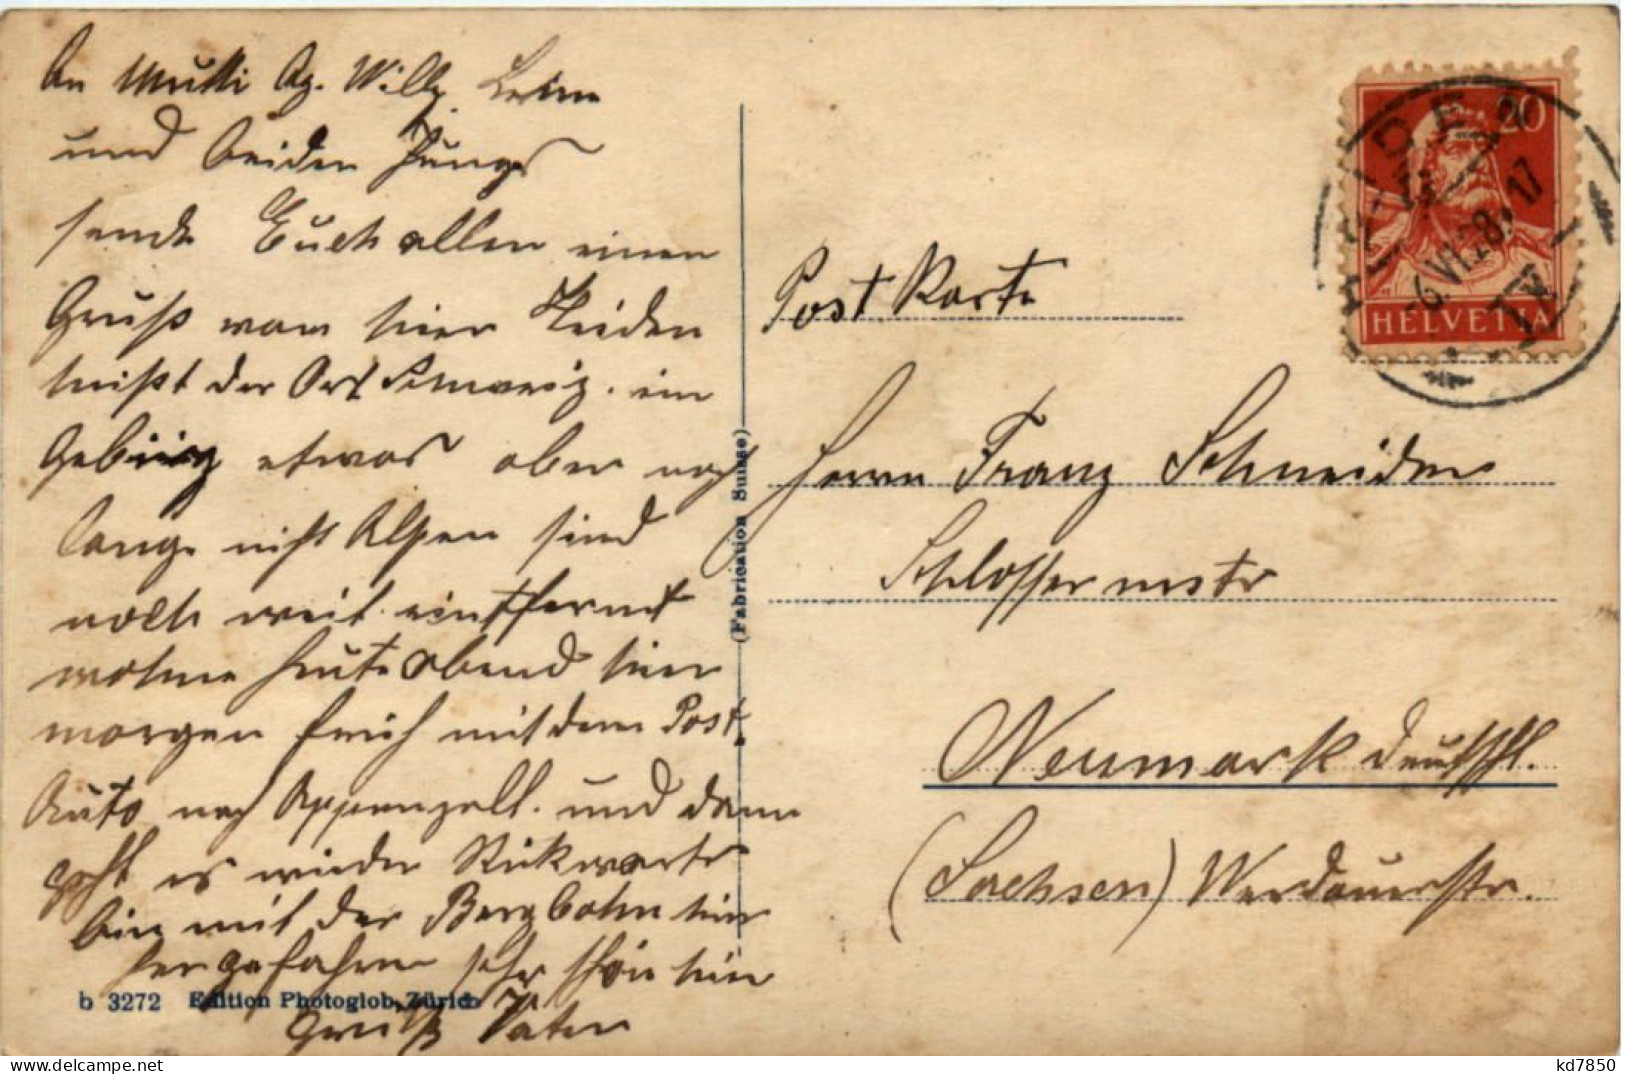 An Mutti Og. Willy
und beiden Jungs
sende Euch allen einen
Gruß vom hier Heiden
heißt der Ort Schweiz. im
Gebürg etwas aber noch
lange nicht Alpen sind
noch weit entffernt
wohne heute abend hier
morgen früh mit dem Post.
Auto nach Appenzell. und dann
geht es wieder Rückwärts
bin mit der Bergbahn hier
her gefahren sehr schön hier
Gruß Vater
b 3272 Edition Photoglob, Zürich
(Fabrication Suisse)
20
HELVETIA
HEIDEN
-6.VI.28.17
Post Karte
Herrn Franz Schneider
Schlossermstr
Neumark Deutschl.
(Sachsen) Werdauerstr.
kd7850